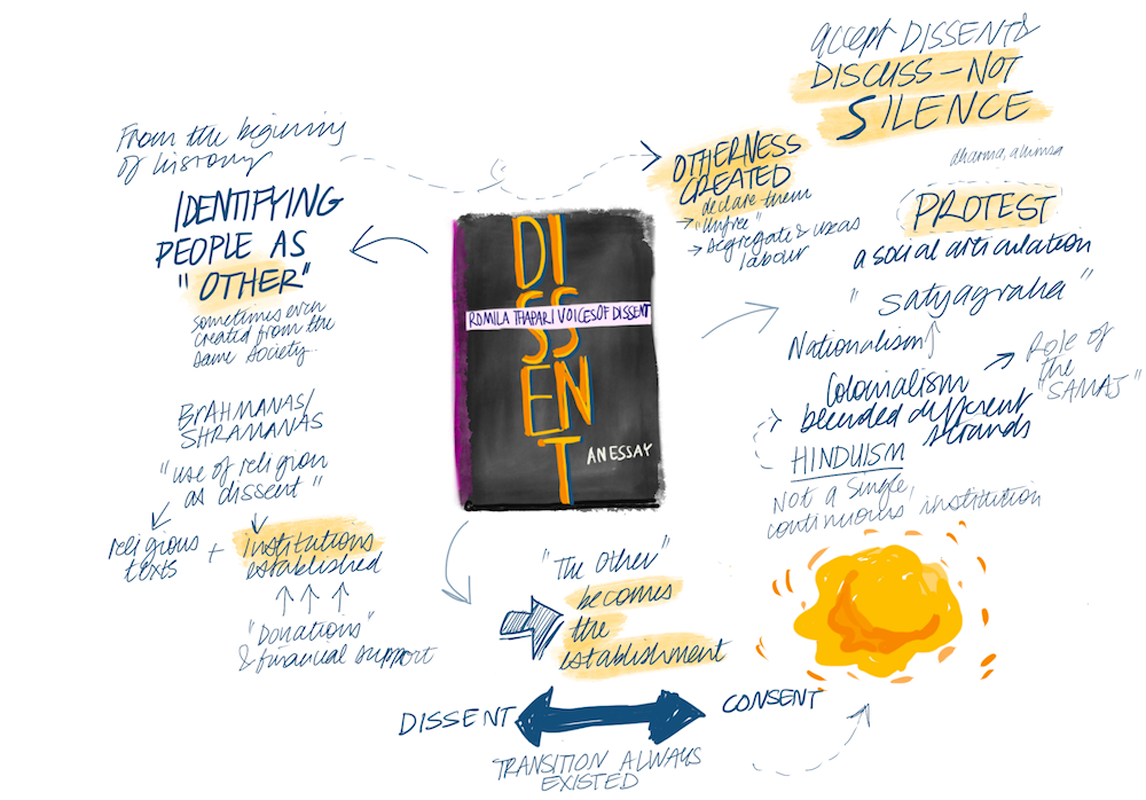 accept DISSENT &
DISCUSS – NOT
SILENCE
From the beginning
of history
IDENTIFYING
PEOPLE AS
"OTHER"
sometimes even
created from the
same society.
OTHERNESS
CREATED
declare them
→ "Unfree"
→ Segregate & use as
labour
dharma, ahimsa
PROTEST
a social articulation
"satyagraha"
Nationalism
Colonialism
blended different
strands
Role of
the
"SAMAJ"
HINDUISM
Not a single,
continuous institution
DISSENT
ROMILA THAPAR | VOICES OF DISSENT
AN ESSAY
BRAHMANAS/
SHRAMANAS
"use of religion
as dissent"
religious
texts
+ institutions
established
"Donations"
& financial support
"The Other"
becomes
the
establishment
DISSENT
CONSENT
TRANSITION ALWAYS
EXISTED